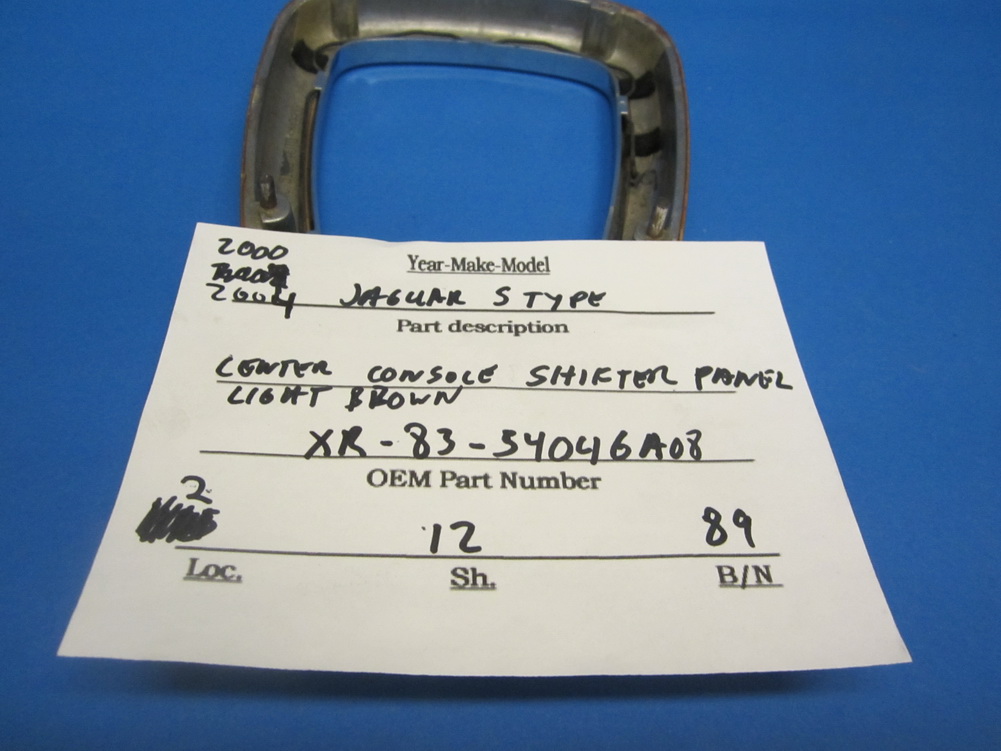 2000
Year-Make-Model
2004 JAGUAR S TYPE
Part description
CENTER CONSOLE SHIFTER PANEL
LIGHT BROWN
XR-83-54046A08
OEM Part Number
2 12 89
Loc. Sh. B/N